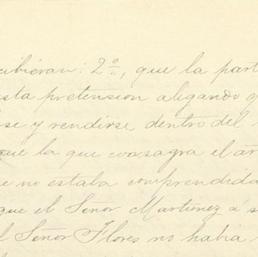 cibieran: 2º, que la part
sta pretension alegando q
se y rendirse dentro del
que la que consagra el ar
e no estaba comprendida
que el Señor Martinez á s
l Señor Flores no habia